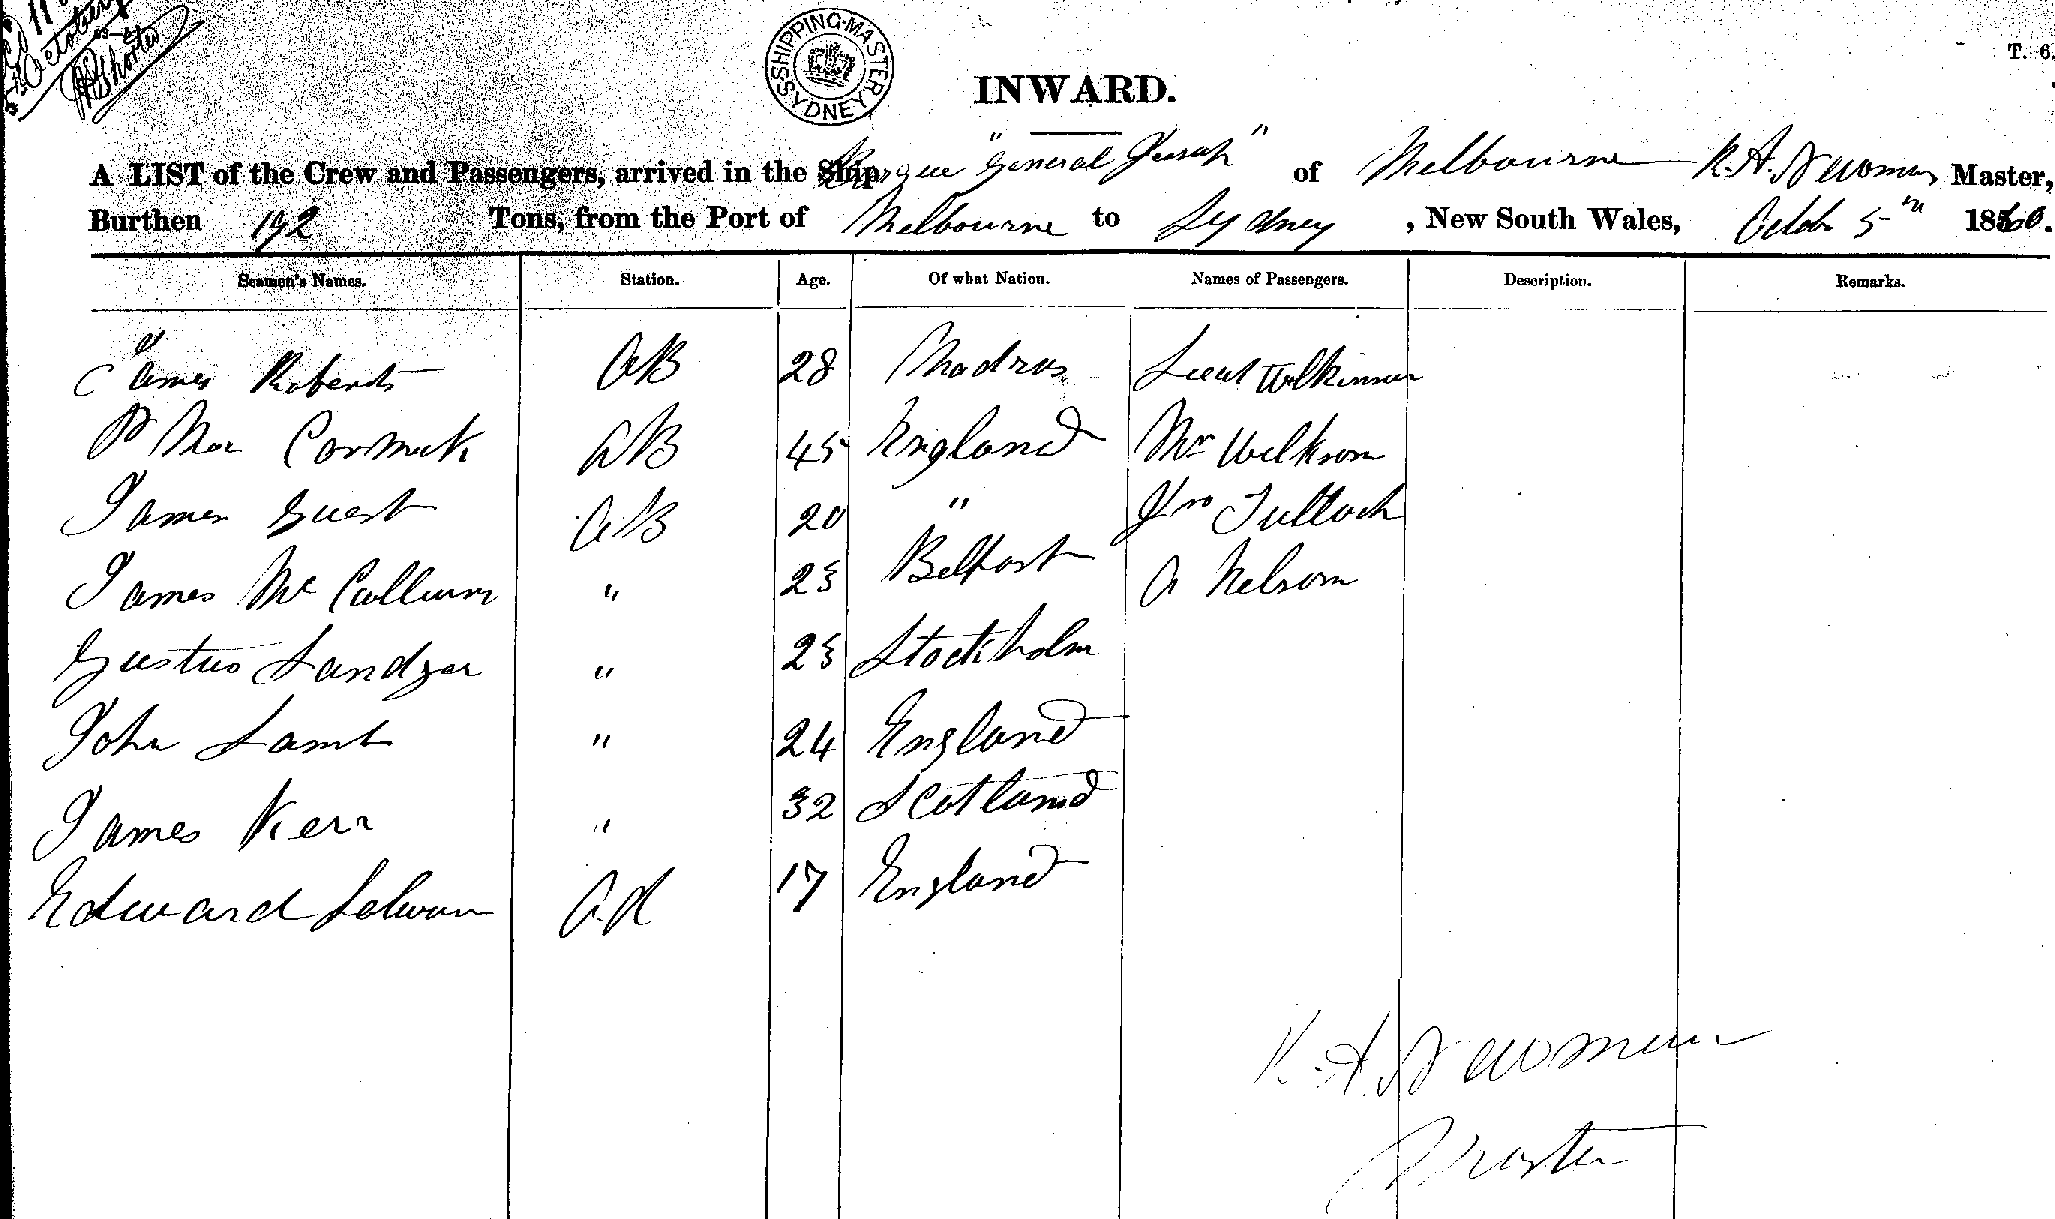 October
SHIPPING MASTER SYDNEY
T. 6.
INWARD.
A LIST of the Crew and Passengers, arrived in the Ship Barque "General Jesup" of Melbourne R. A. Newman Master,
Burthen 192 Tons, from the Port of Melbourne to Sydney, New South Wales, Octob 5th 1860.
Seamen's Names. Station. Age. Of what Nation. Names of Passengers. Description. Remarks.
James Roberts AB 28 Madras Lieut Wilkinson
Cormick AB 45 England Mr Wilkson
James Guest AB 20 " Jno Tulloch
James Mc Callum " 23 Belfast A Nelson
Gustus " 23 Stockholm
John Lamb " 24 England
James Kerr " 32 Scotland
Edward 17 England
R. A. Newman
Master